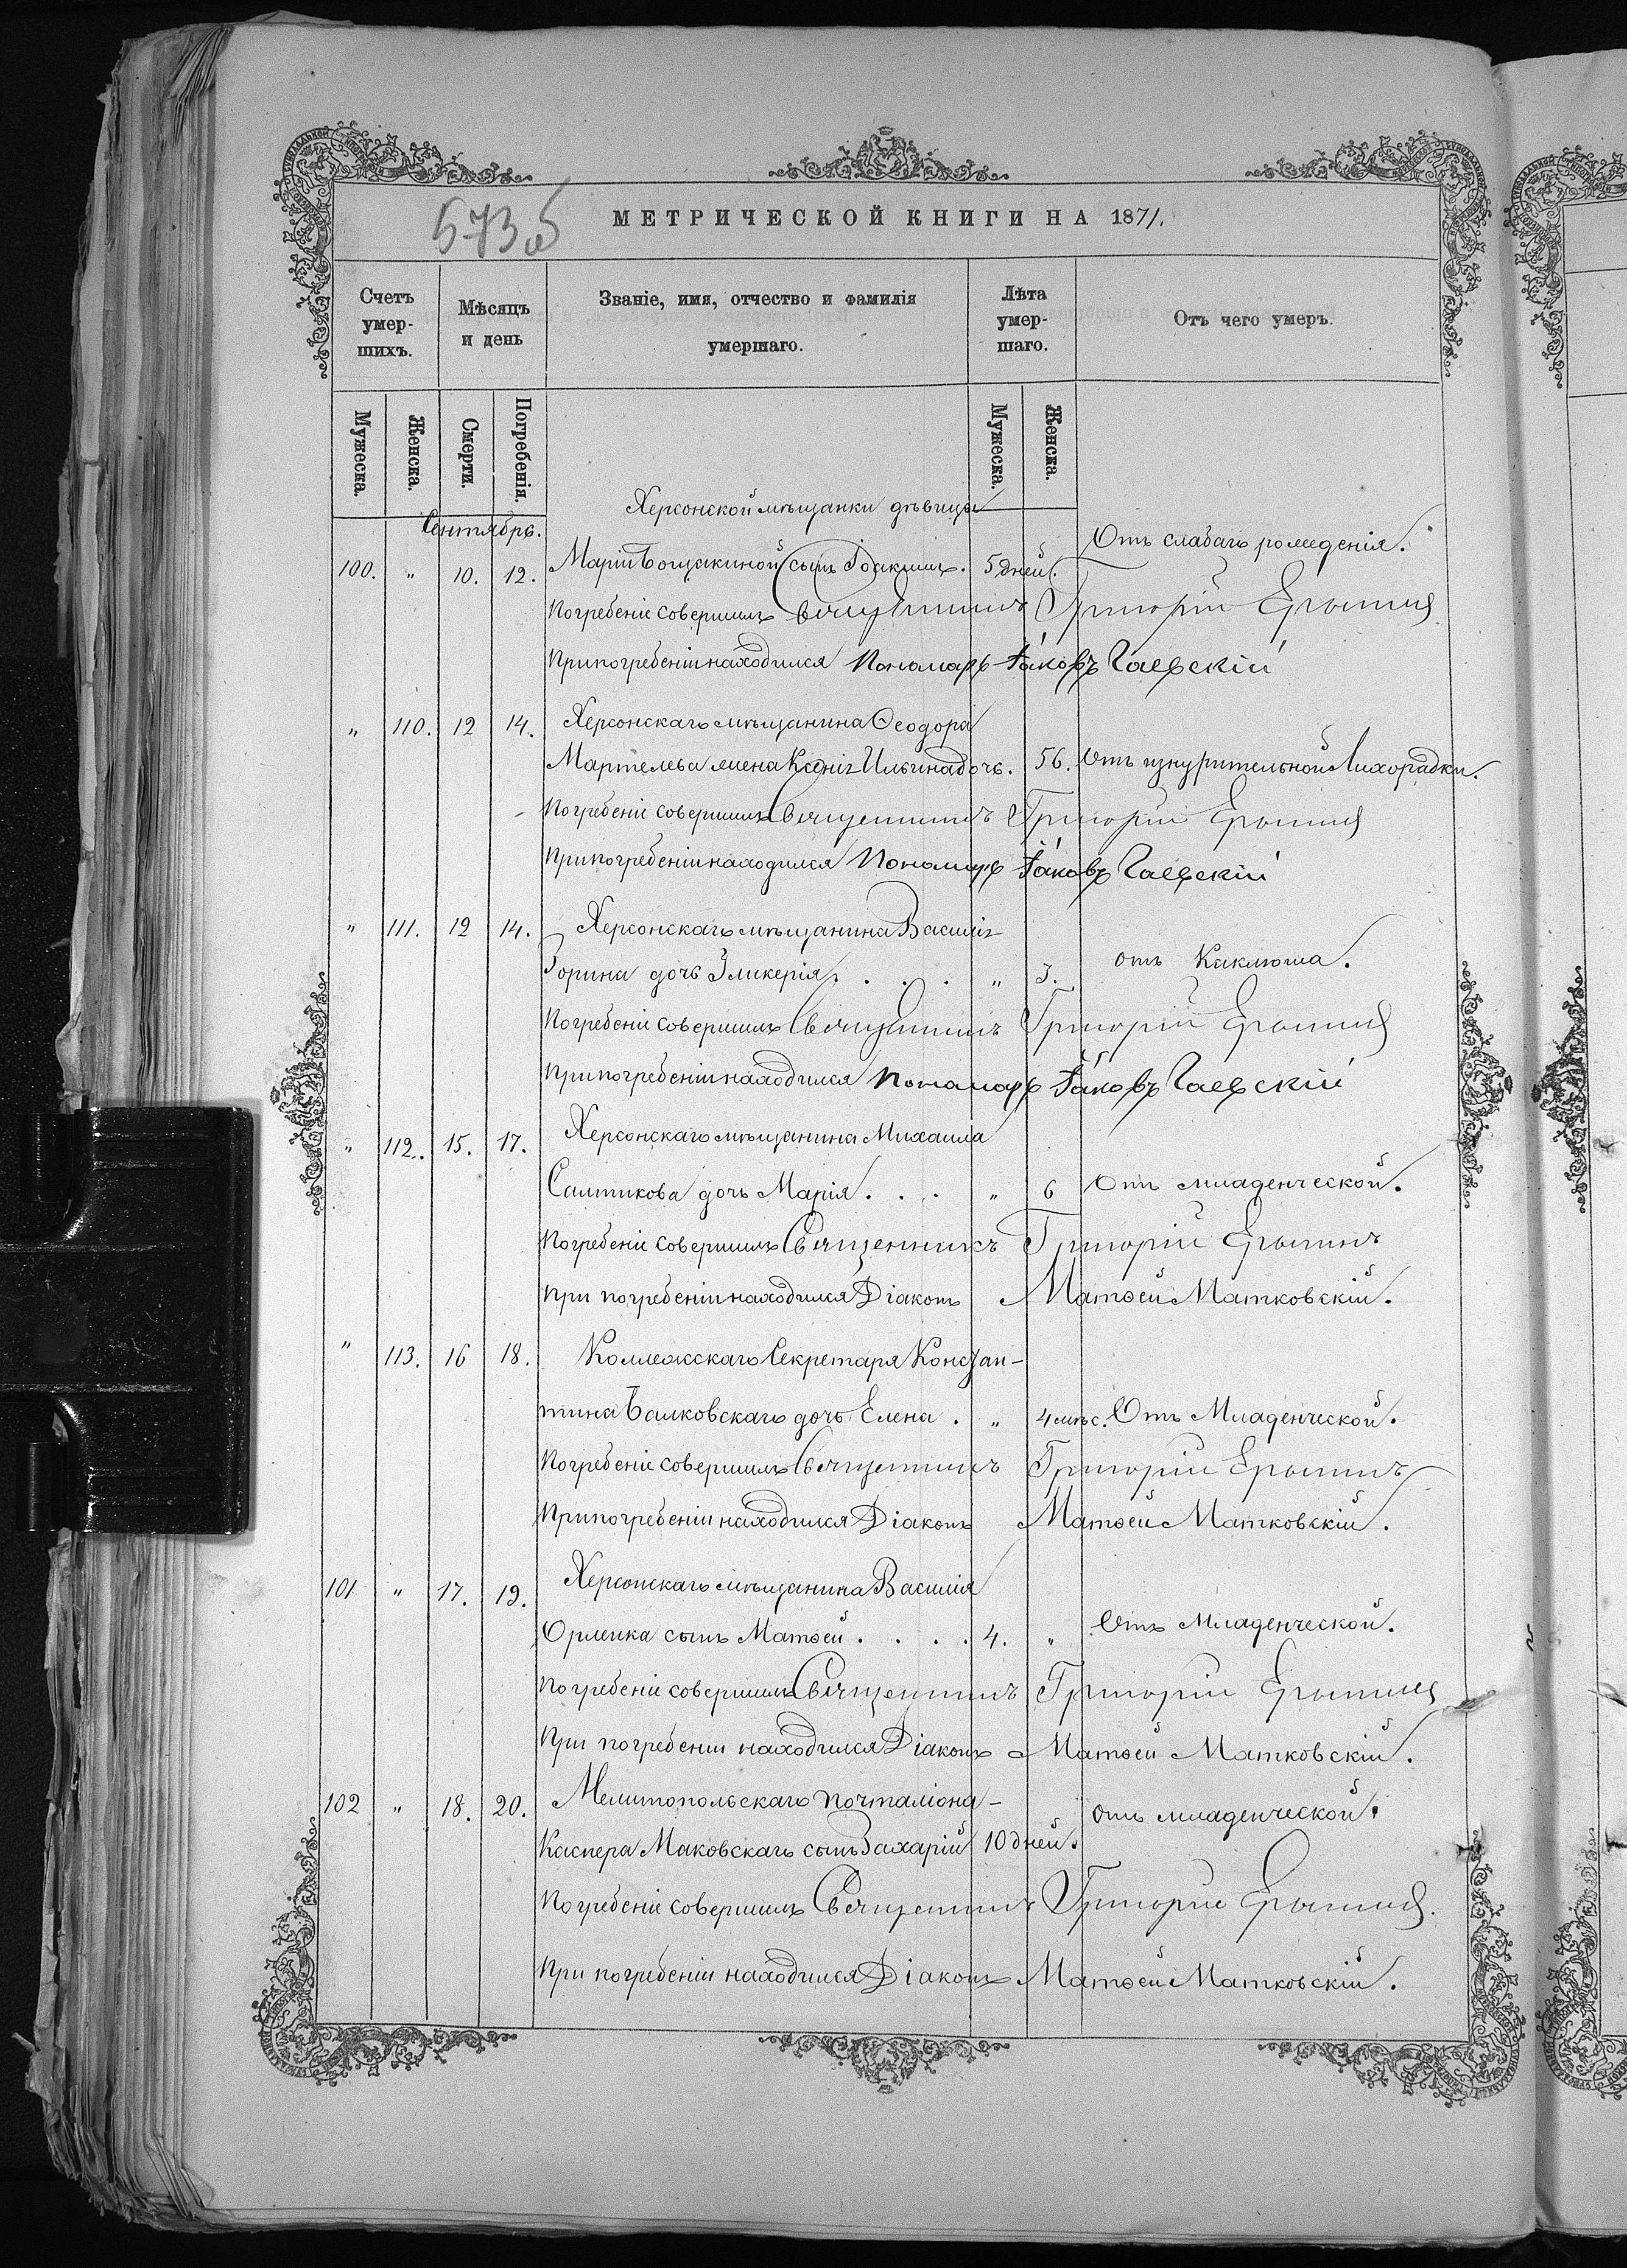 573 об
МЕТРИЧЕСКОЙ КНИГИ НА 1871.
Счетъ умер-шихъ.
Мѣсяцъ и день
Званіе, имя, отчество и фамилія умершаго.
Лѣта умер-шаго.
Отъ чего умеръ.
Мужеска.
Женска.
Смерти.
Погребенія.
Мужеска.
Женска.
Сентябрь.
Херсонской мѣщанки дѣвицы
100. " 10. 12. Маріи Бощакиной сынъ Іоакимъ. 5 дней. Отъ слабаго рожденія.
Погребеніе совершилъ Священникъ Григорій
При погребеніи находился Пономарь Іаковъ Гаевскій
" 110. 12 14. Херсонскаго мѣщанина Ѳеодора
Мартелева жена Ксенія Ильина дочь. 56. Отъ изнурительной Лихорадки.
Погребеніе совершилъ Священникъ Григорій
При погребеніи находился Пономарь Іаковъ Гаевскій
" 111. 12 14. Херсонскаго мѣщанина Василія
Горина дочь Гликерія. . . . " 3. отъ Каклюша.
Погребеніе совершилъ Священникъ Григорій
При погребеніи находился Пономарь Іаковъ Гаевскій
" 112. 15. 17. Херсонскаго мѣщанина Михаила
Салтикова дочь Марія. . . " 6 Отъ младенческой.
Погребеніе совершилъ Священникъ Григорій
При погребеніи находился Діаконъ Матѳей Матковскій.
" 113. 16 18. Коллежскаго Секретаря Констан-
тина Балковскаго дочь Елена. " 4 мѣс. Отъ Младенческой.
Погребеніе совершилъ Священникъ Григорій
При погребеніи находился Діаконъ Матѳей Матковскій.
101 " 17. 19. Херсонскаго мѣщанина Василія
Орленка сынъ Матѳей. . . . 4. " Отъ Младенческой.
Погребеніе совершилъ Священникъ Григорій
При погребеніи находился Діаконъ Матѳей Матковскій.
102 " 18. 20. Мелитопольскаго почталіона-
отъ младенческой.
Каспера Маковскаго сынъ Захарій 10 дней.
Погребеніе совершилъ Священникъ Григорій
При погребеніи находился Діаконъ Матѳей Матковскій.